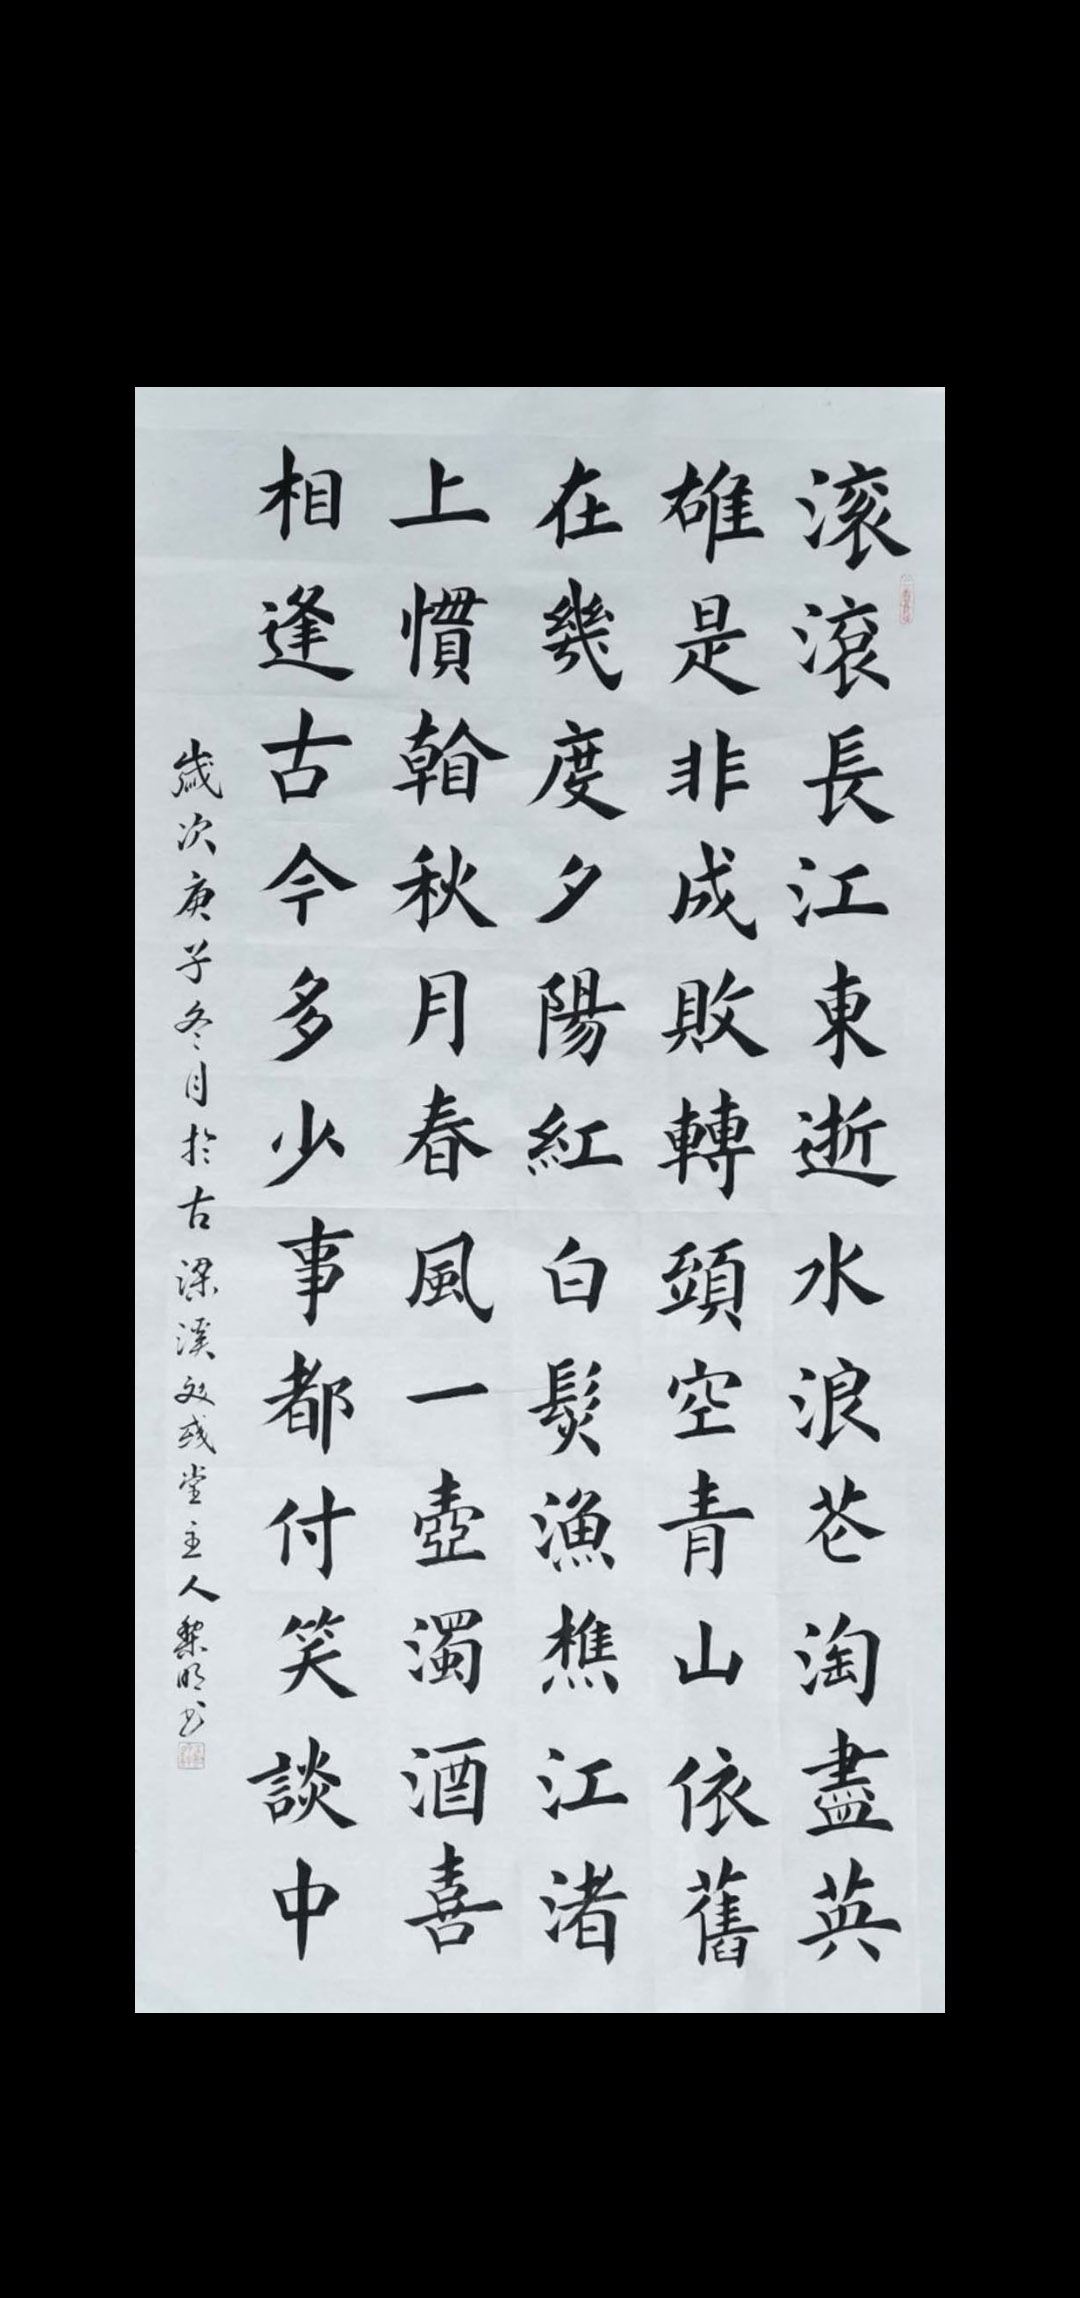 滚滾長江東逝水浪花淘盡英
雄是非成敗轉頭空青山依舊
在幾度夕陽紅白髮漁樵江渚
上慣㫪秋月春風一壺濁酒喜
相逢古今多少事都付笑談中
歲次庚子冬月於古梁溪 堂主人黎明书